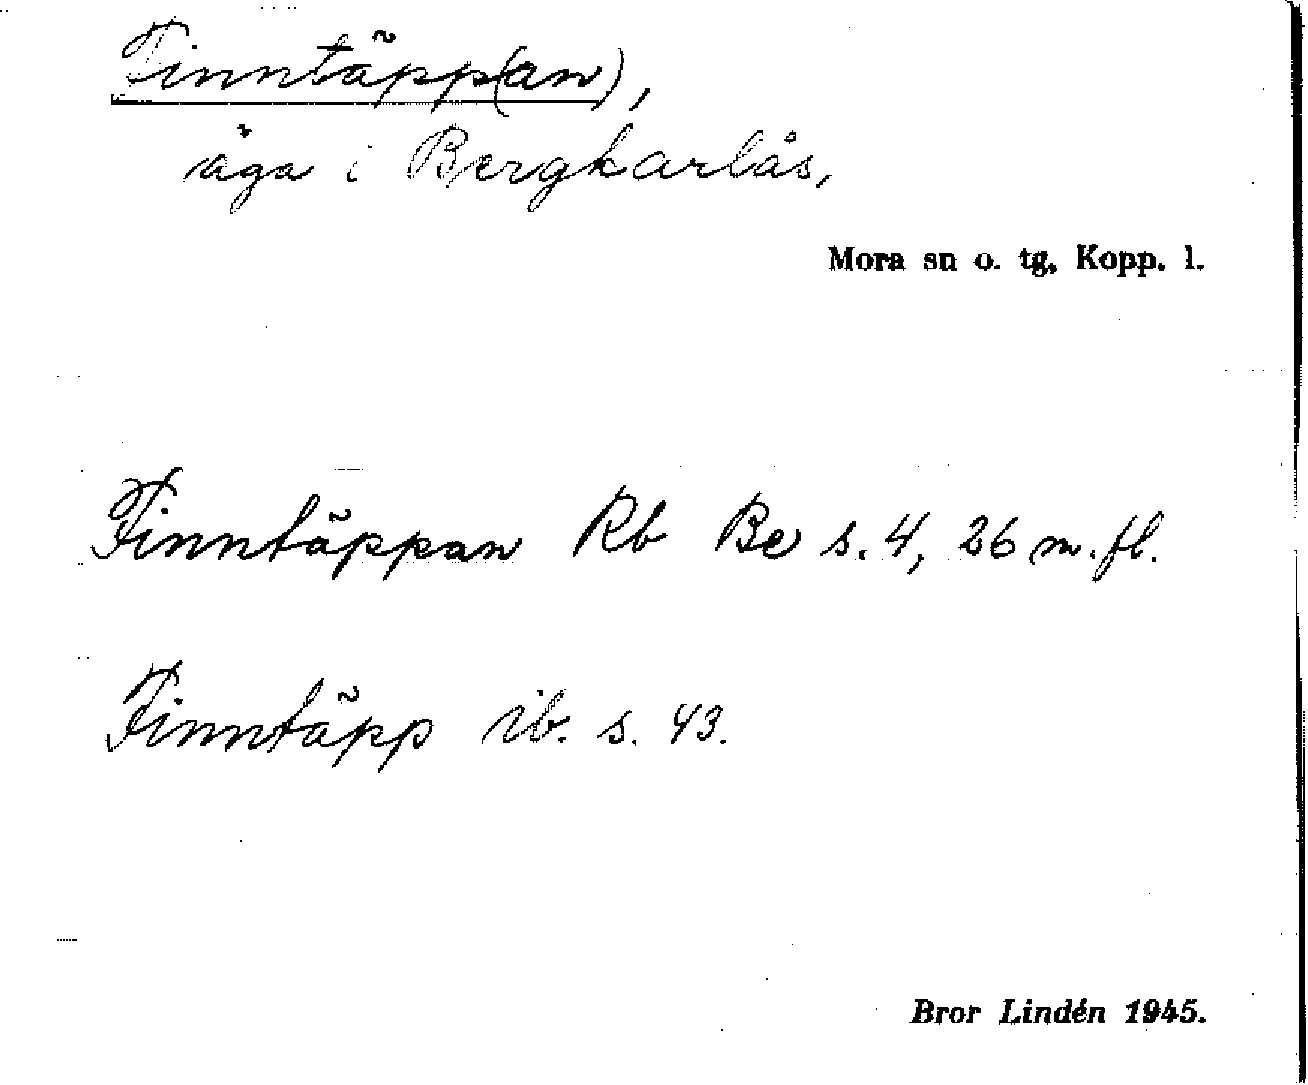 Finntäpp(an),
äga i Bergkarlås,
Mora sn o. tg, Kopp. l.
Finntäppan Rb Be s. 4, 26 m. fl.
Finntäpp ib. s. 43.
Bror Lindén 1945.